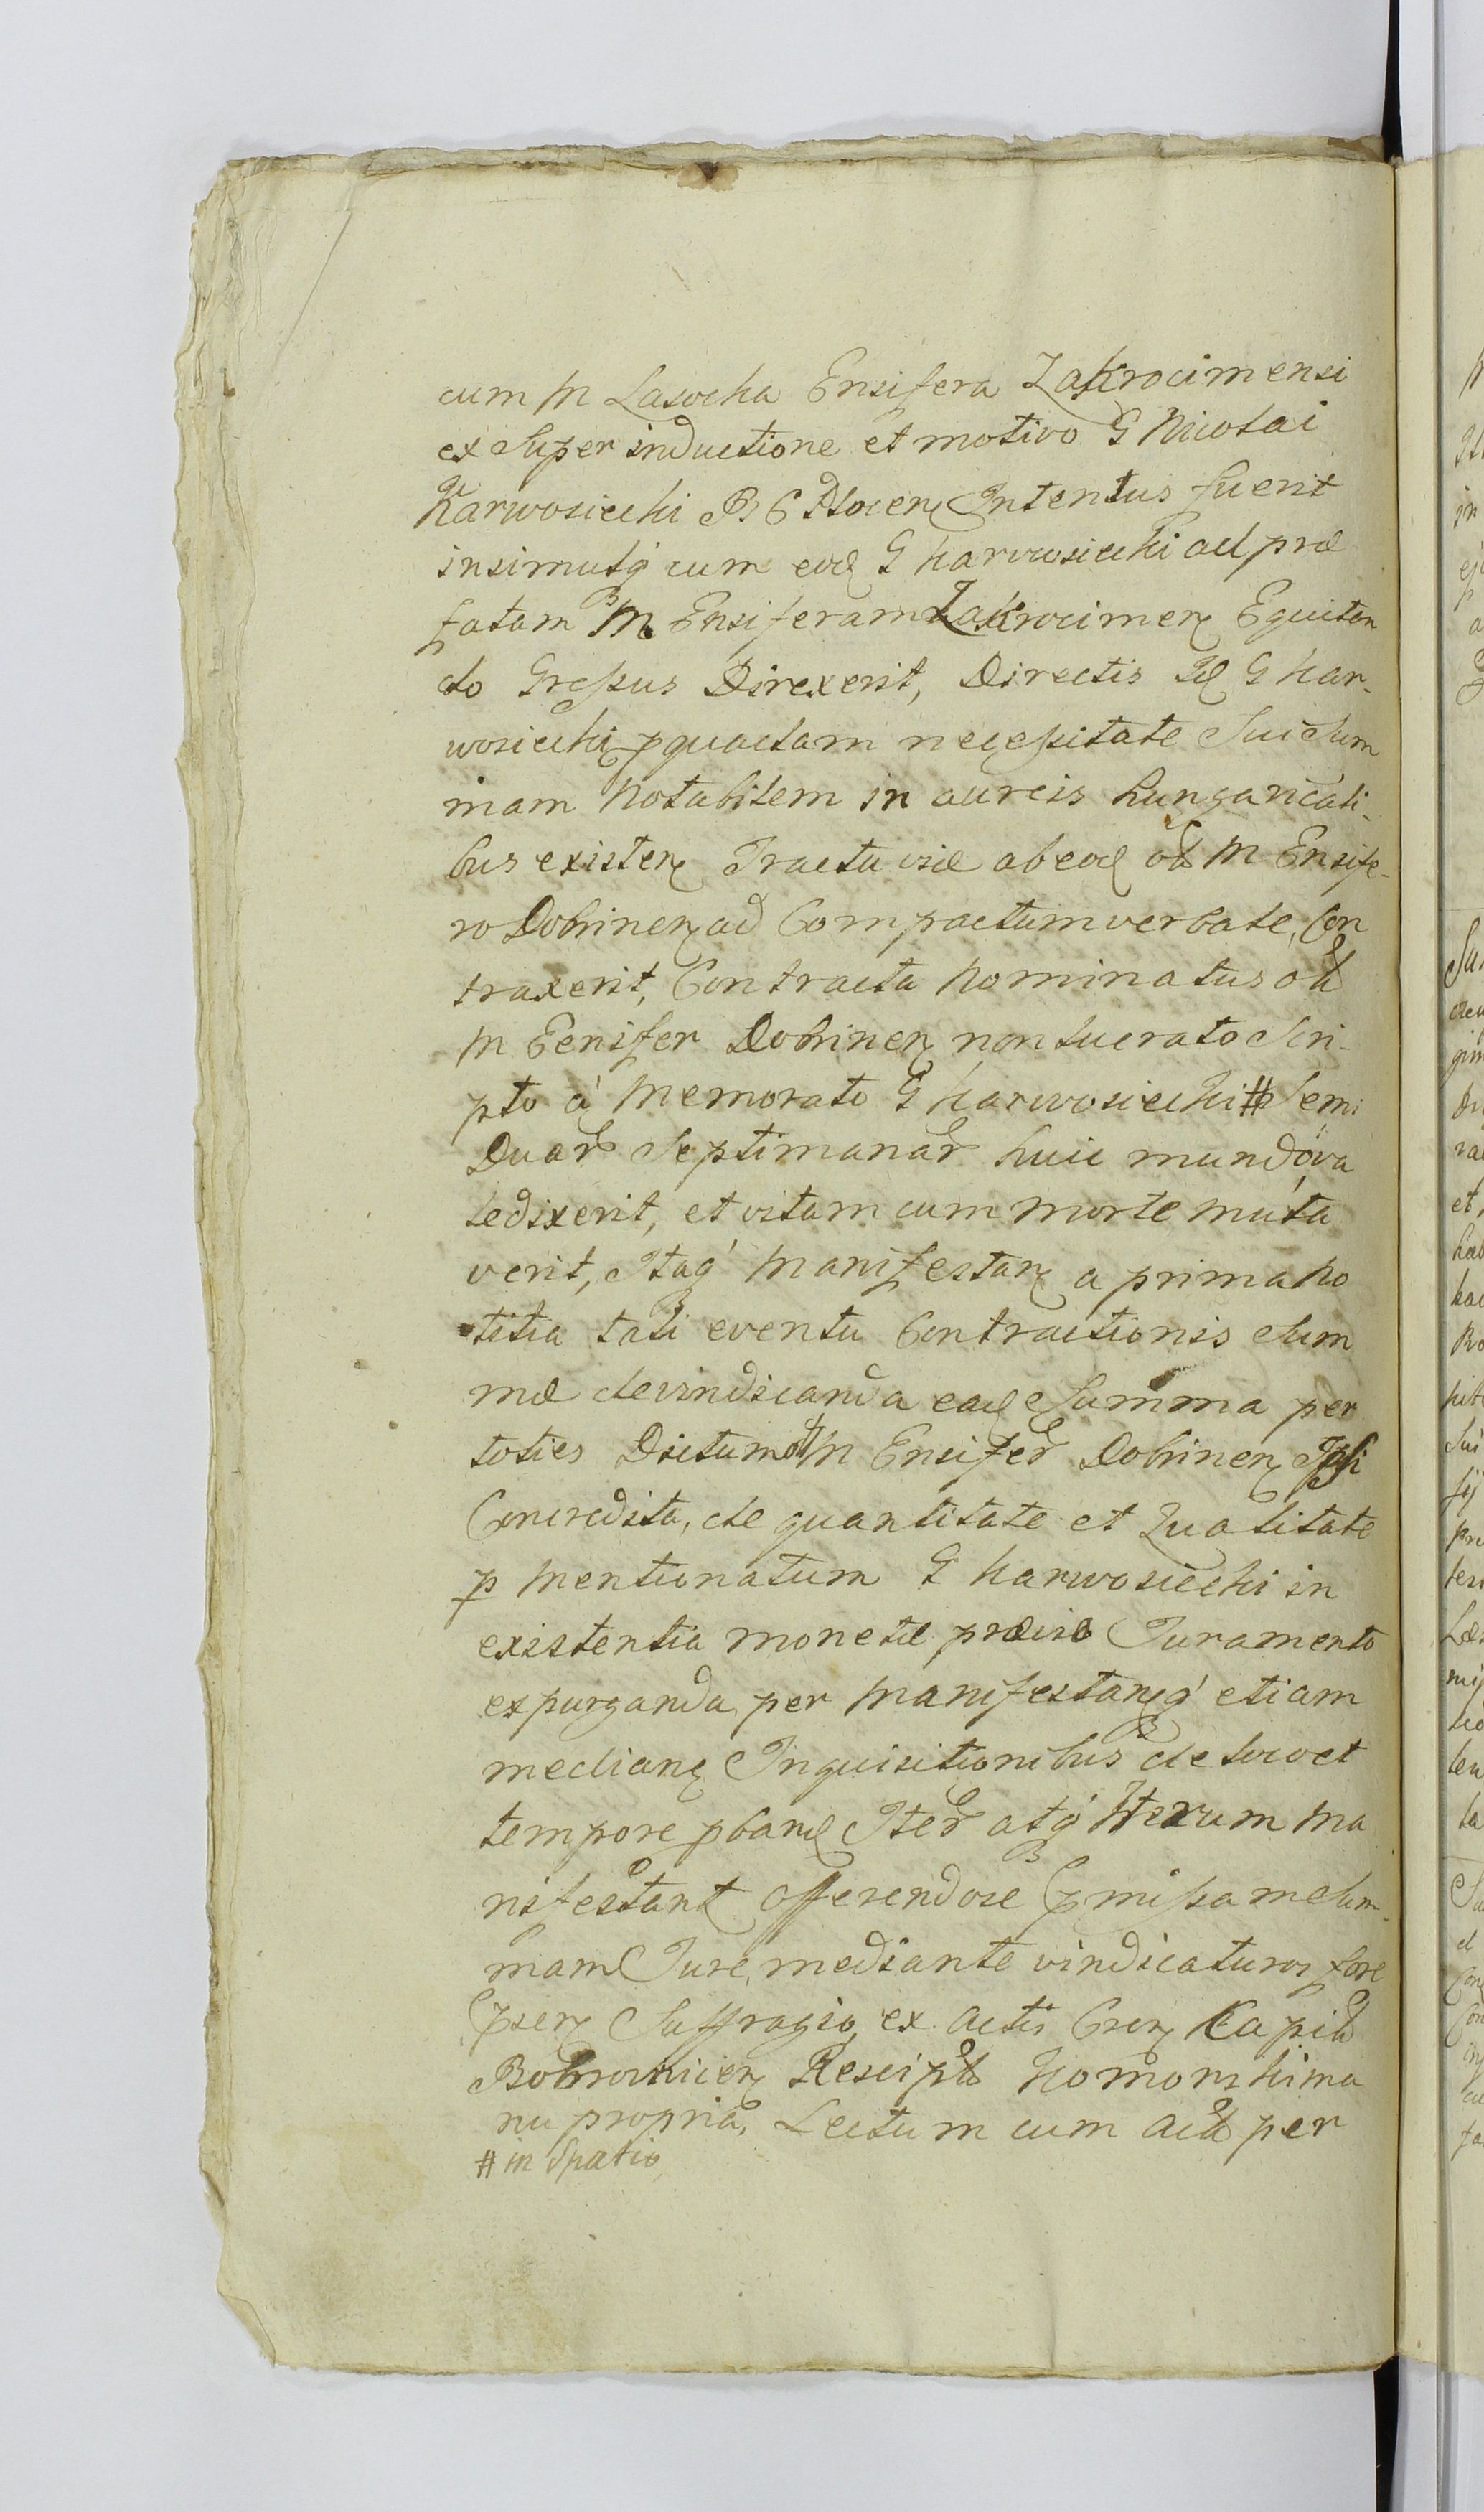 cum M Lasocka Ensifera Zakrocimensi
ex super inductione et motivo G Nicolai
Karwosiecki B C Plocen Intentus fuerit
insimulq cum eod G Karwosiecki ad præ
fatam M Ensiferam Zakrocimen Equitan
do Gressus Direxerit, Directis Id G Kar-
wosiecki p quadam necessitate Sui Sum
mam Notabilem in aureis hungaricali-
bus existen Tractu viæ ab eod olim M Ensife-
ro Dobrinen ad Compactum verbale, Con
traxerit, Contracta Nominatus ol
M Eensifer Dobrinen non lucrato Scri-
pto à Memorato G Karwosiecki # Semi
Duar Septimanar huic mundo va
ledixerit, et vitam cum morte muta
verit, Itaq Manifestan a prima No
titia tali eventu Contractionis Sum
mæ de vindicanda ead Summa per
toties Dictum ol M Ensifer Dobrinen Ipsi
Concredita, de quantitate et Qualitate
p mentionatum G Karwosiecki in
existentia monetæ præviæ Juramento
expurganda per Manifestanq etiam
median Inquisitionibus de loco et
tempore pband Iter atq Iterum ma
nifestant offerendo se pmissam Sum-
mam Jure, mediante vindicaturos fore
psen Suffragio, ex Actis Cren Capit
Bobrownicen Rescipt Komorski ma
nu propria, Lectum cum Act per
# in Spatio